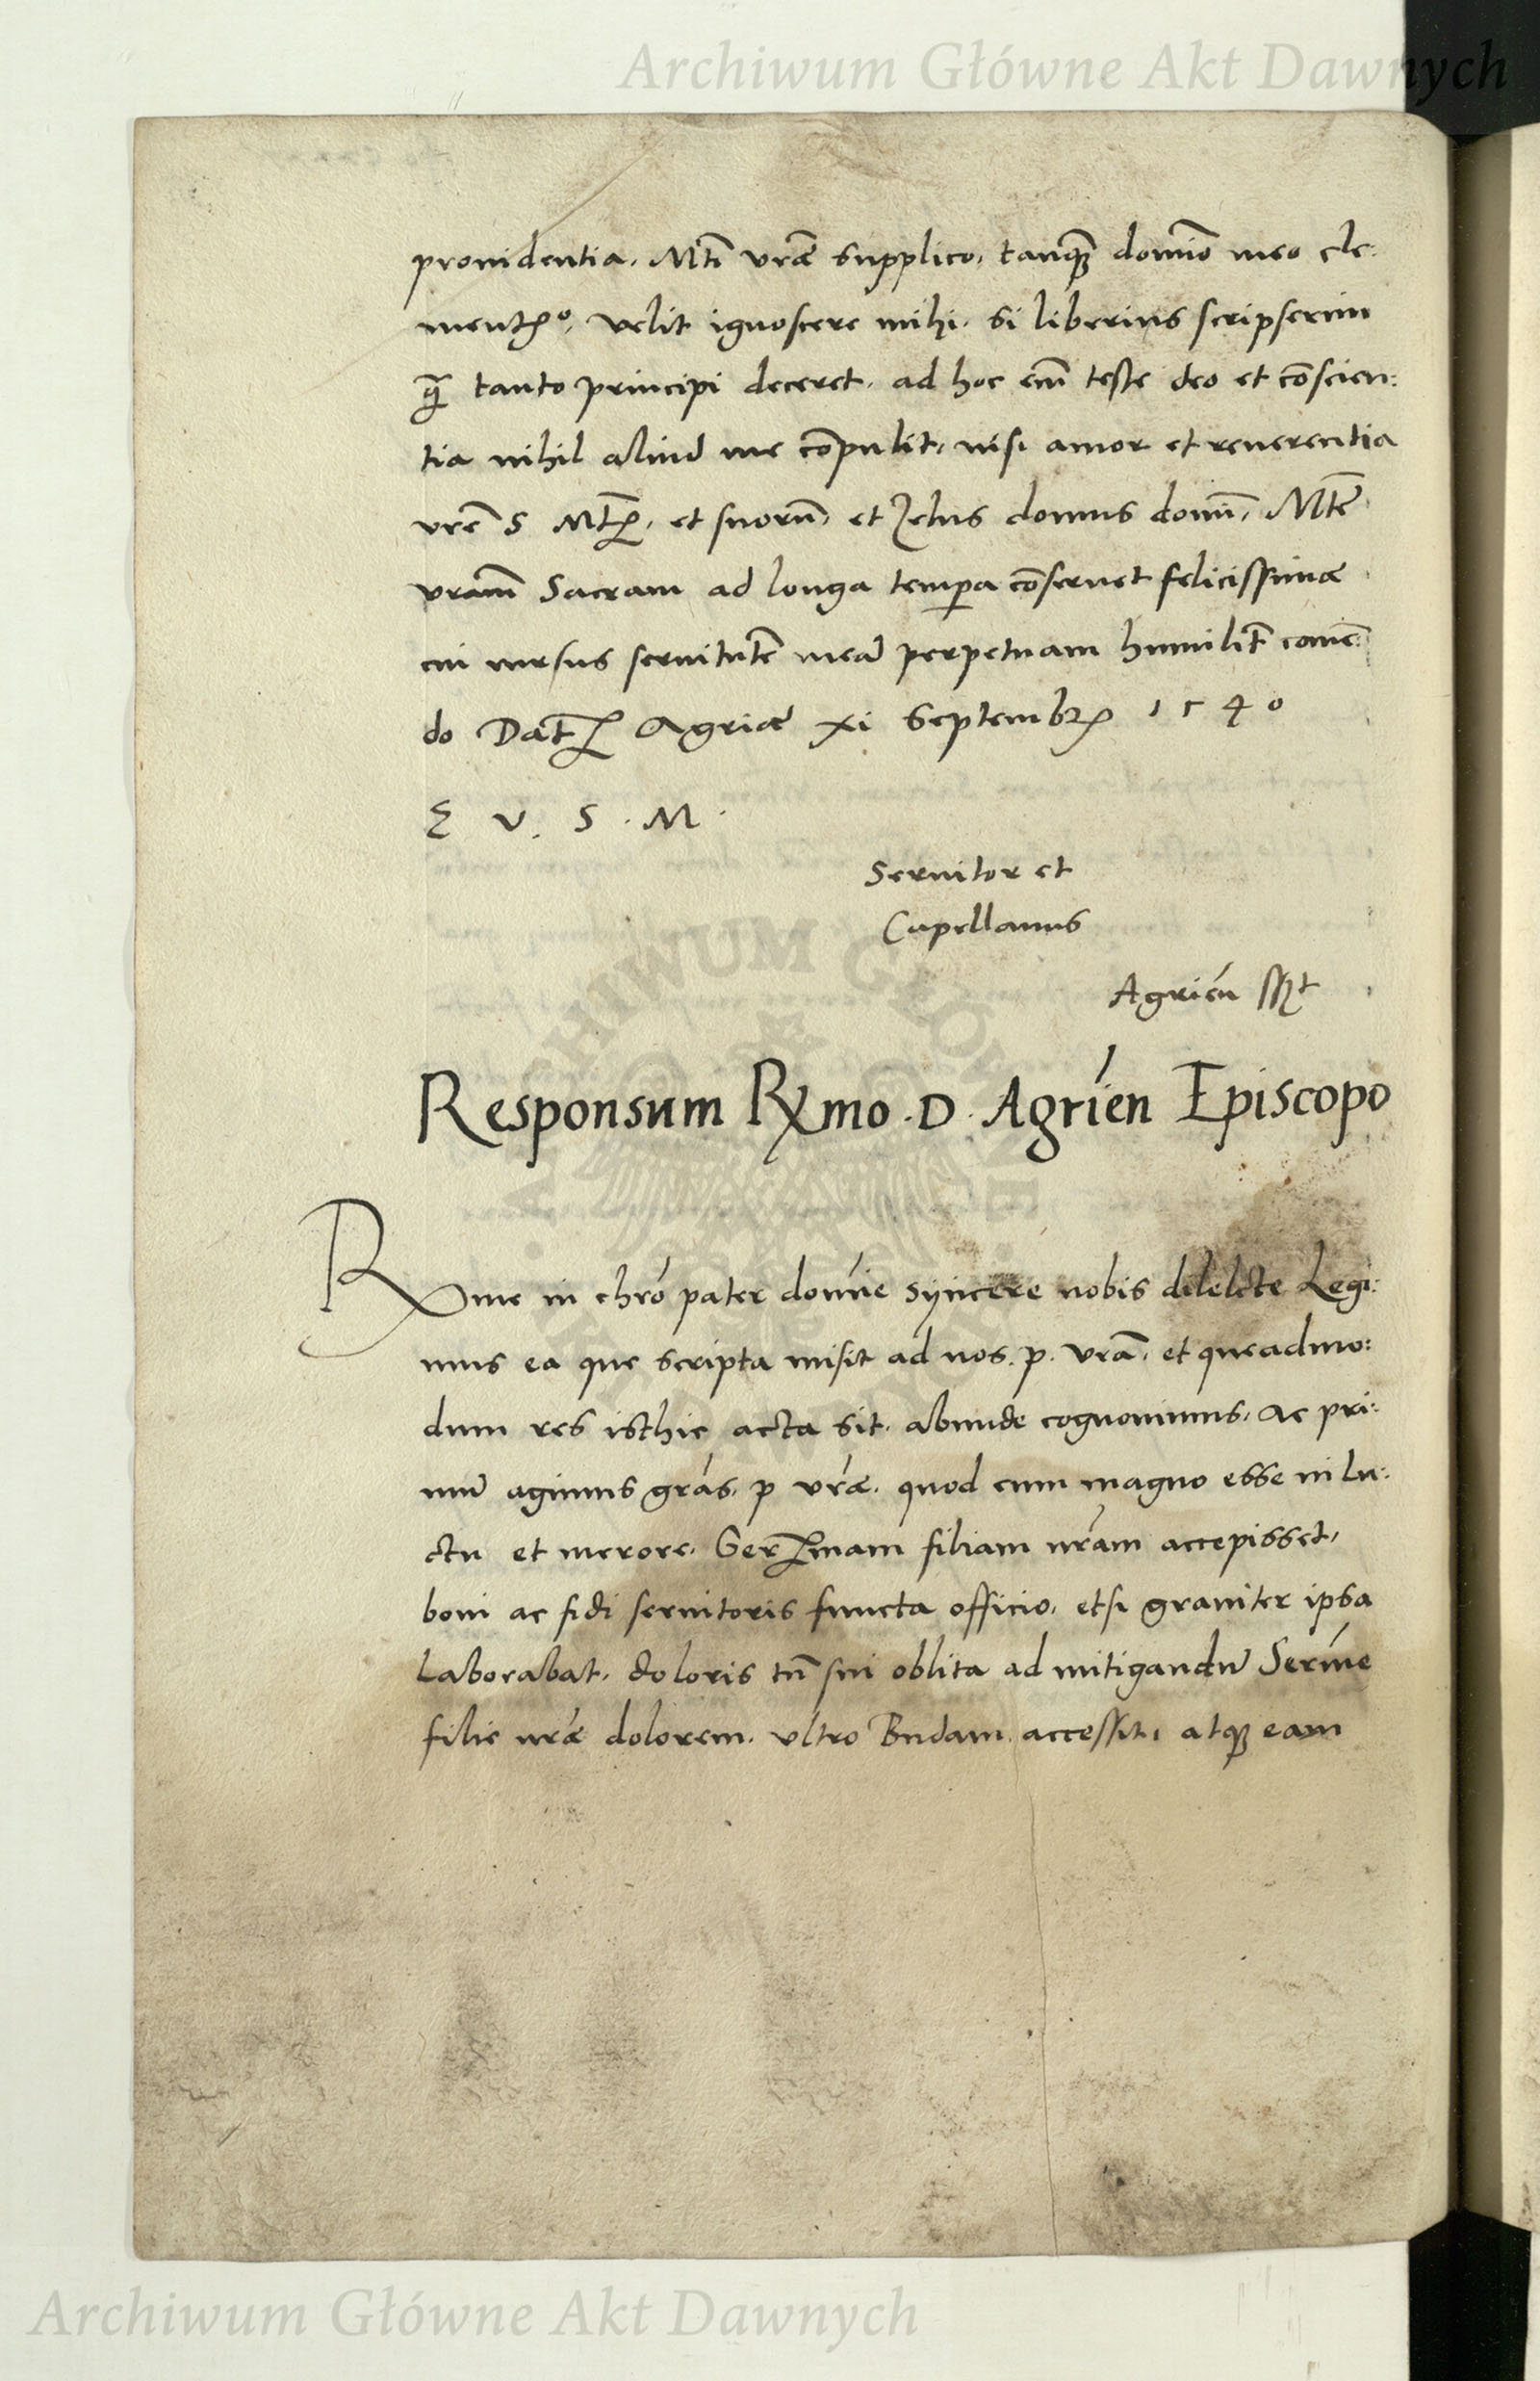 Archiwum Główne Akt Dawnych
prouidentia. Mti vrae supplico, tanq̃ domĩo meo cle:
mentᷤº, velit ignoscere mihi, si liberius scripserim
q̃ tanto principi deceret. ad hoc em̃ teste deo et conscien:
tia nihil aliud me cõpulit, nisi amor et reuerentia
vrẽ S Mtꝭ, et suorũ, et zelus domus domĩ, Mtẽ
vram̃ Sacram ad longa tempa cõseruet felicissimae
cui rursus seruitutẽ meã perpetuam humilit̃ com̃ẽ:
do Datꝭ Agriae xi Septembrꝭ 1540
E V. S. M.
Seruitor et
Capellanus
Agrień sst
Responsum Rxmo. D. Agrień Episcopo
Rxme in chr̃o pater domĩe syncere nobis dilelcte Legi:
mus ea que scripta misit ad nos. p. vrã, et queadmo:
dum res isthic acta sit, abunde cognouimus, Ac pri:
mũ agimus gras. p vrae. quod cum magno esse in lu:
ctu et merore, Serᷤmam filiam nram accepisset,
boni ac fidi seruitoris functa officio, etsi grauiter ipsa
laborabat, doloris tñ sui oblita ad mitigandũ Serme
filie nrae dolorem. vltro Budam accessit, atq̃ eam
ARCHIWUM GŁÓWNE
AKT DAWNYCH
Archiwum Główne Akt Dawnych